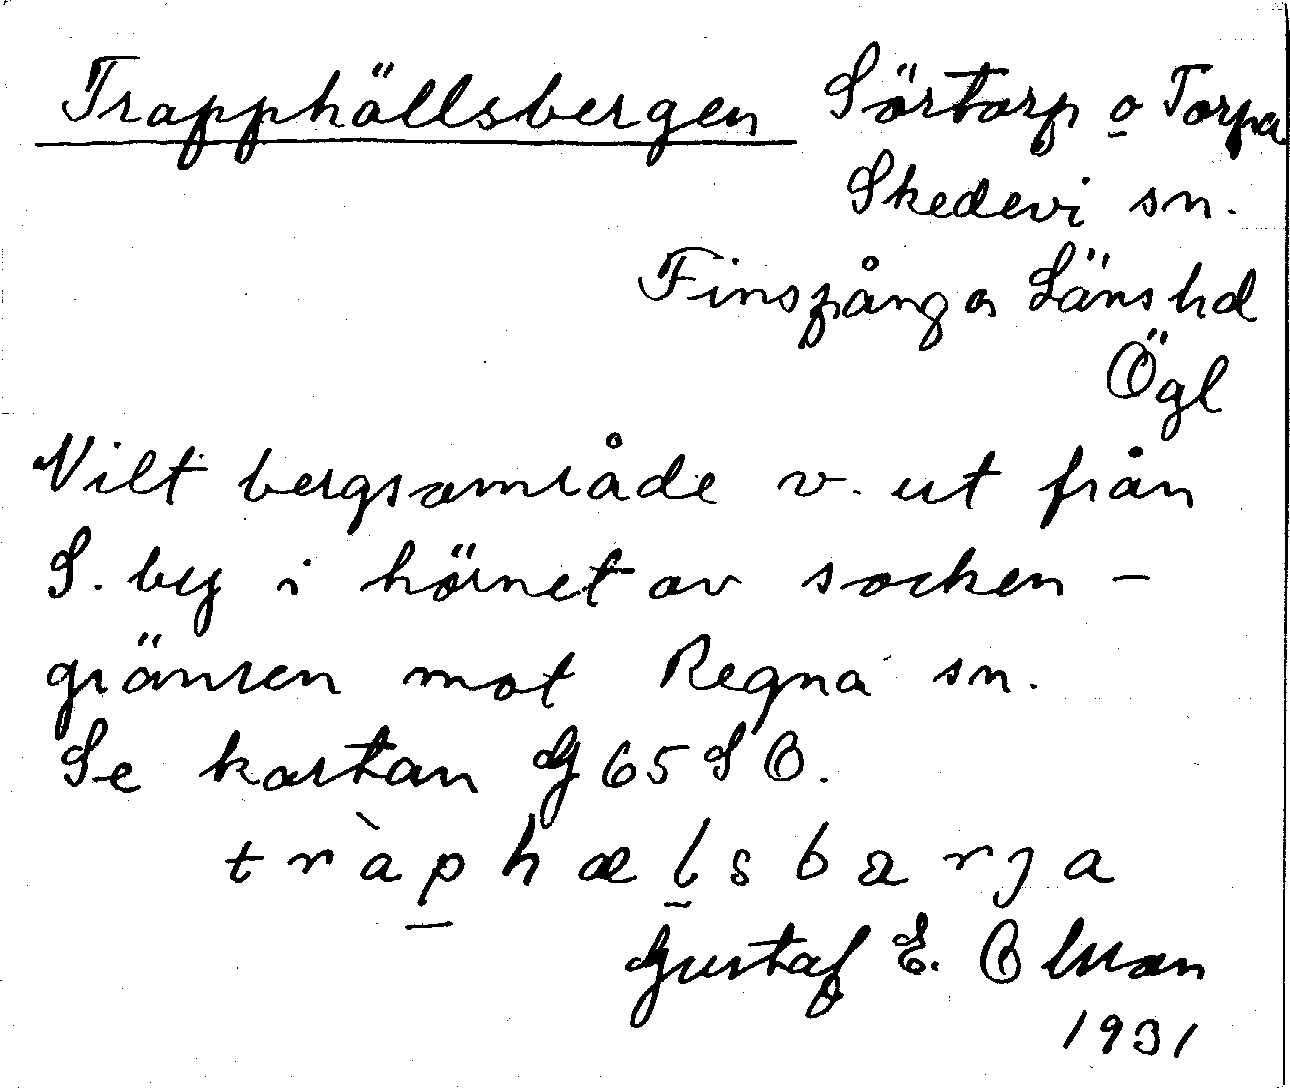 Trapphällsbergen Sörtorp o Torpa
Skedevi sn.
Finspånga Länshd
Ögl
Vilt bergsområde v. ut från
S. by i hörnet av socken-
gränsen mot Regna sn.
Se kartan G 65 S O.
tràphælsbærja
Gustaf E. Olsson
1931